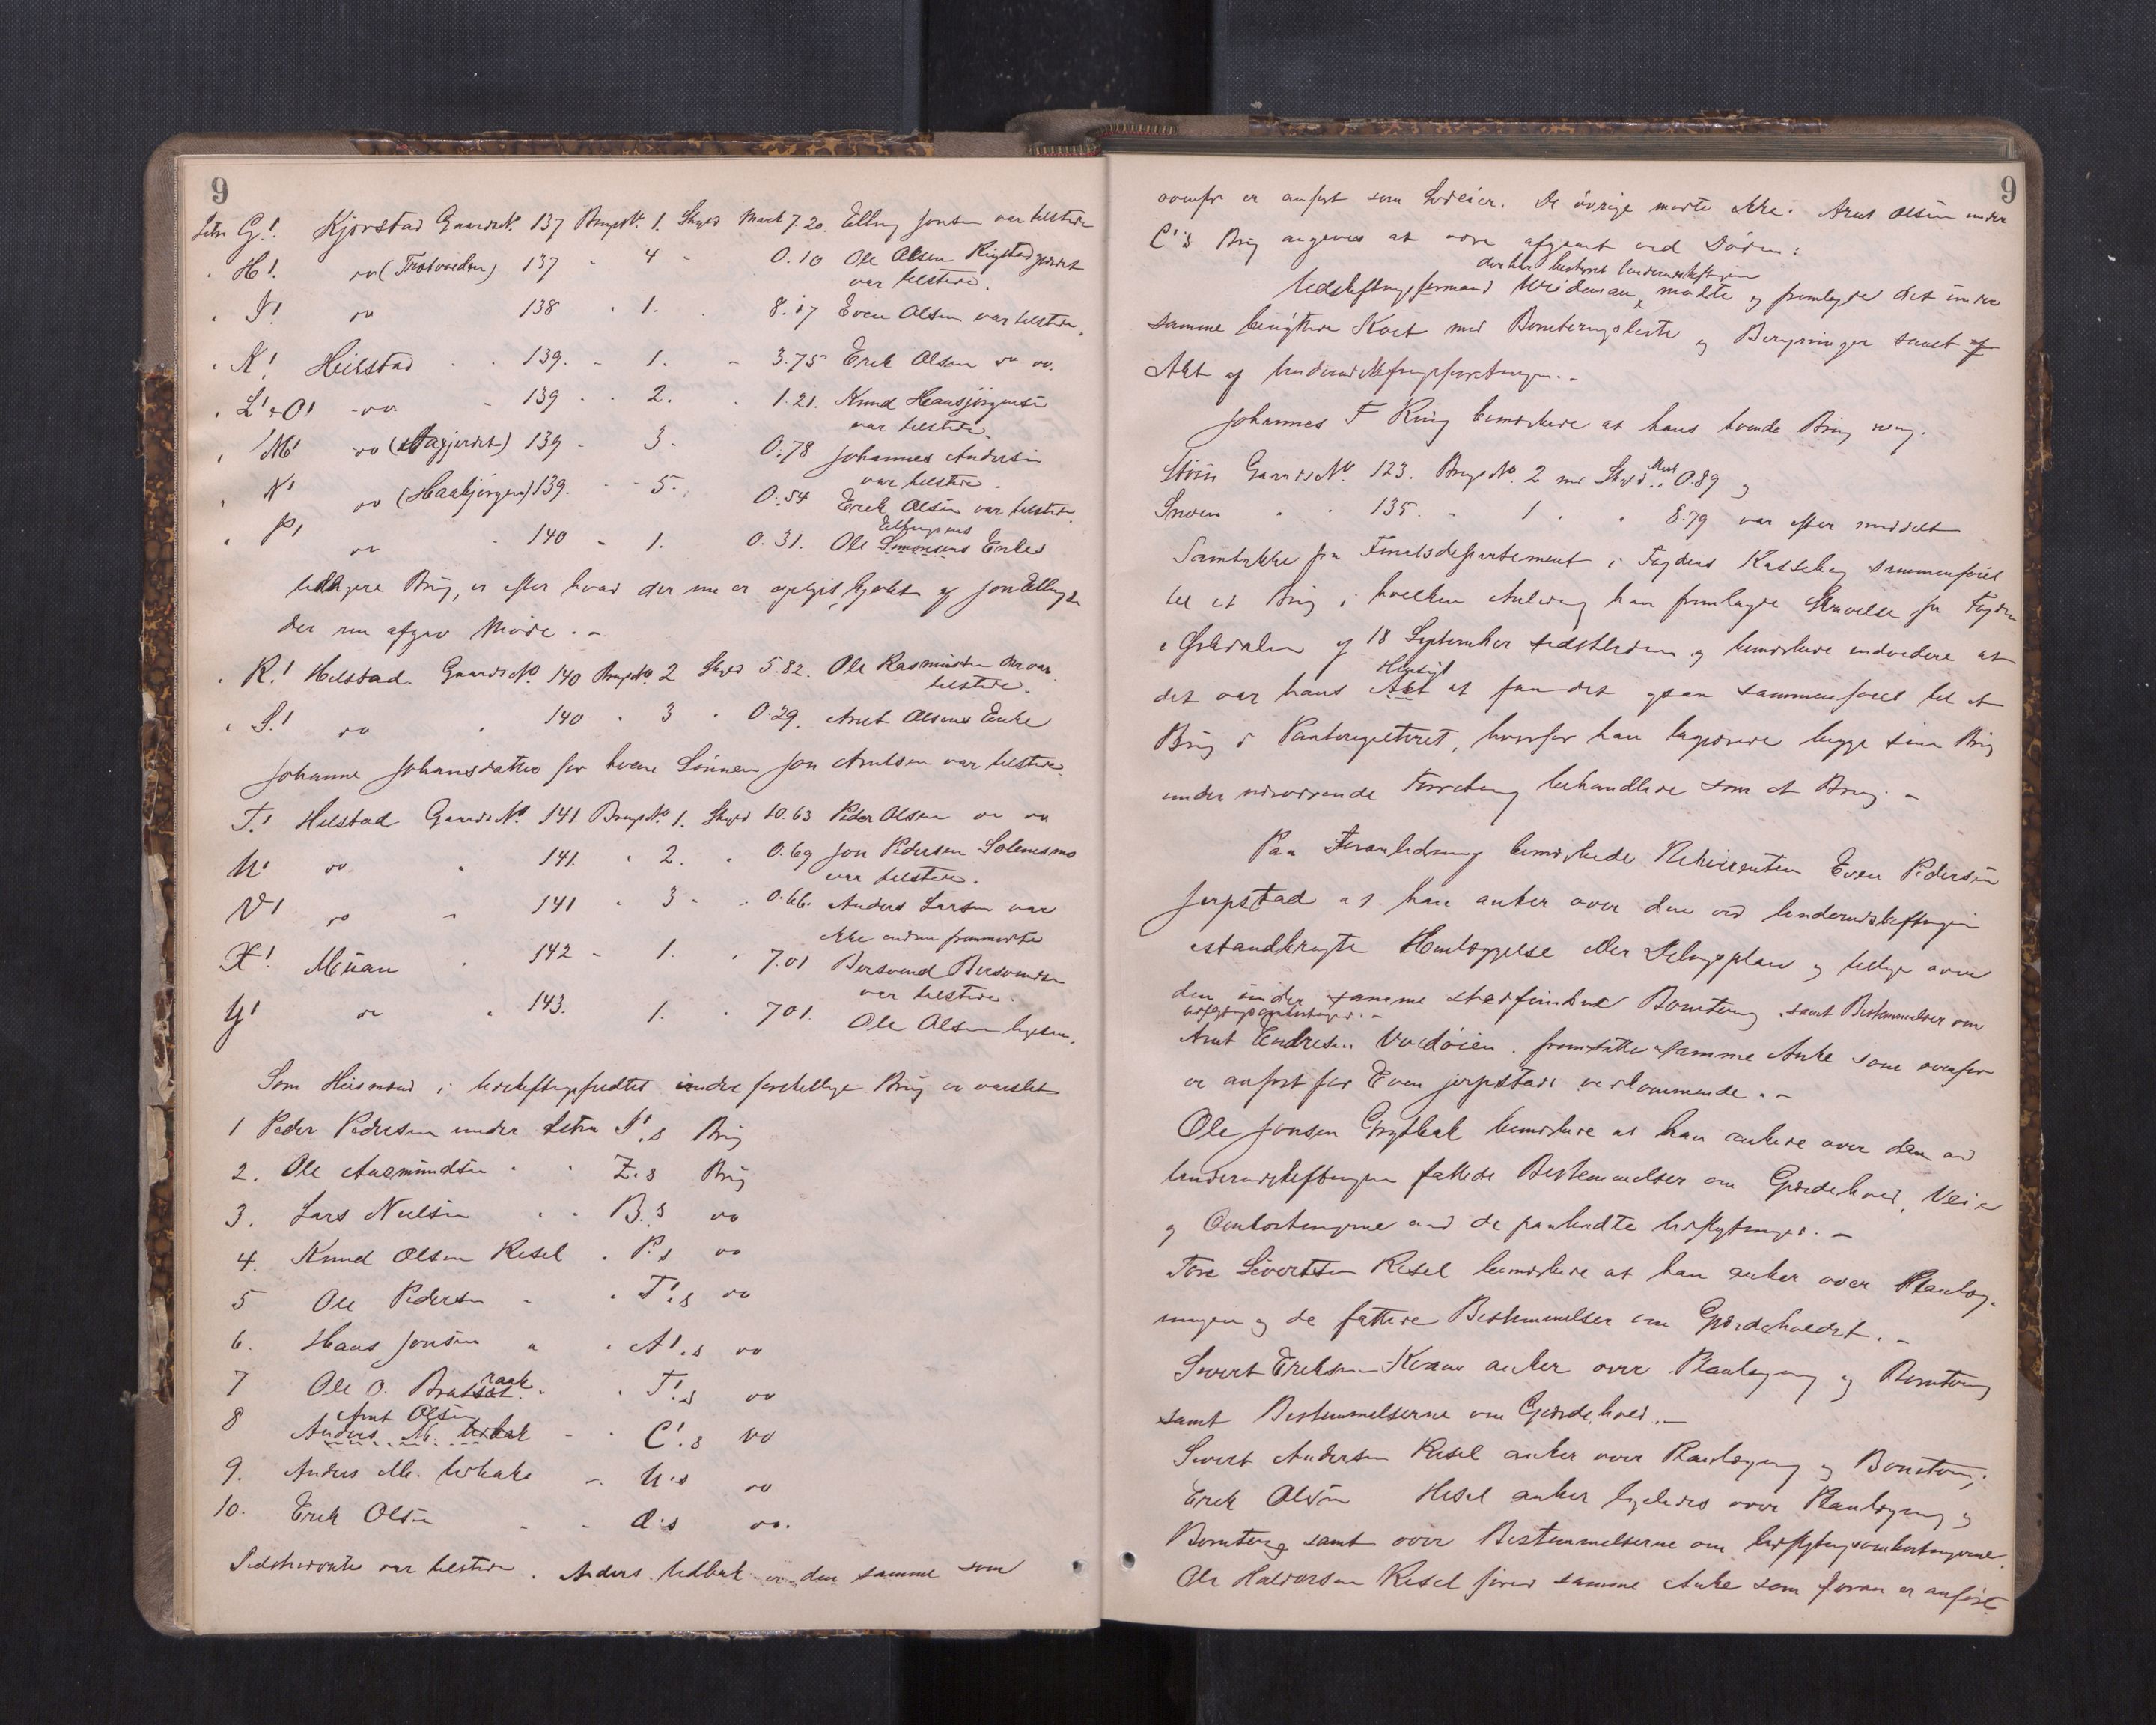 9
Litr G! Kjørstad Gaards№ 137 Brugs№ 1. Skyld Mark 7.20. Elling Jonsen var tilstede
" H! do (Trotoveiden) 137 " 4 " 0.10 Ole Olsen
var tilstede.
" I! do 138 " 1. 8.17 Even Olsen var tilstede.
" K! Heilstad " " 139. - 1. - 3.75 Erik Olsen do do.
" L! & O! do " 139 " 2. " 1.21. Knud Hansjørgensen
var tilstede.
" M! do 139 - 3 - 0.78 Johannes Andersen
var tilstede.
" N! do (Haabjørgen) 139. - 5. 0.54 Erik Olsen var tilstede
" P! do " 140 - 1. 0.31. Ole Simonsens Enkes
Ellingsens
tidligere Brug, er efter hvad der nu er oplyst, kjøbt af Jon Ellingsen
der nu afgav Møde. -
" R! Helstad Gaards№ 140 Brugs№ 2 Skyld 5.82. Ole Rasmussen der var
tilstede.
" S! do " 140 " 3 " 0.29. Arnt Olsens Enke
Johanne Johansdatter for hvem Sønnen Jon Arntsen var tilstede.
T! Helstad Gaards№ 141. Brugs№ 1. Skyld 10.63 Peder Olsen do do
U! do " 141. " 2. " 0.69 Jon Pedersen Solemsmo
var tilstede.
V! do " 141 " 3 " 0.66. Anders Larsen var
ikke endnu fremmødte
X! Meuan " 142 - 1. " 7.01 Bersvend Bersvendsen
var tilstede.
Y! do " 143. 1. " 701. Ole Olsen ligesaa.
Som Heismænd i Udskiftningsfeltet under forskjellige Brug er varslet
1 Peder Pedersen under Litra I!s Brug
2. Ole Aasmundsen " " Z.s Brug
3. Lars Nielsen " " B.s do
4. Knud Olsen Resel " P.s do
5 Ole Pedersen " " T!s do
6. Hans Jonsen " " A!s do
7 Ole O. " T!s do
8 Arnt Olsen
Anders M. Udbak - " C!s do
9. Anders M. Udbak - U.s do
10. Erik Olsen - - a.s do.
Sidstnævnte var tilstede. Anders Udbak er den samme som
9
ovenfor er anført som Lodeier. De øvrige mødte ikke. Arnt Olsen under
C!s Brug angaves at være afgaaet ved Døden:
der har bestyret Underudskiftningen
Udskiftningsformand Weideman, mødte og fremlagde det under
samme benyttede Kart med Boniteringsliste og Beregninger samt af
Akt af Underudskiftningsforretningen. -
Johannes F Ring bemærkede at hans tvende Brug nemlig.
Støren Gaards№ 123. Brugs№ 2 med Skyld Mark 0.89 og
Snoen " " 135. " 1 " " 8.79 var efter meddelt
Samtykke fra Finatsdepartement i Fogdens Kassebog sammenføiet
til et Brug i hvilken Anledning han fremlagde Skrivelse fra Fogden
i Guldalen af 18 September sidstleden og bemærkede endvidere at
Hensigt
det var hans Akt at faa det ogsaa sammenføiet til et
Brug i Panteregisteret, hvorfor han begjærede begge sine Brug
under nærværende Forretning behandlede som et Brug. -
Paa Foranledning bemærkede Rekvirenten Even Pedersen
Jerpstad at han anker over den ved Underudskiftningen
istandbragte Henlæggelse eller Delingsplan og tillige over
den under samme stedfundne Bonitering, samt Bestemmelser om
Udflytningsomkostninger. -
Arnt Endresen Vordøien fremsatte samme Anke som ovenfor
er anført for Even Jerpstads vedkommende. -
Ole Jonsen Grytbak bemærkede at han ankede over den ved
Underudskiftningen fattede Bestemmelser om Gjærdehold, Veie
og Omkostningerne ved de paabudte Udflytninger. -
Tore Sivertsen Resel bemærkede at han anker over Planlæg-
ningen og de fattede Bestemmelser om Gjærdeholdet. -
Sivert Eriksen Kvam anker over Planlægning og Bonitering
samt Bestemmelserne om Gjærdehold. -
Sivert Andersen Resel anker over Planlægning og Bonitering,
Erik Olsen Resel anker ligeledes over Planlægning og
Bonitering samt over Bestemmelserne om Udflytningsomkostningerne.
Ole Haldorsen Resel fører samme Anke som foran er anført